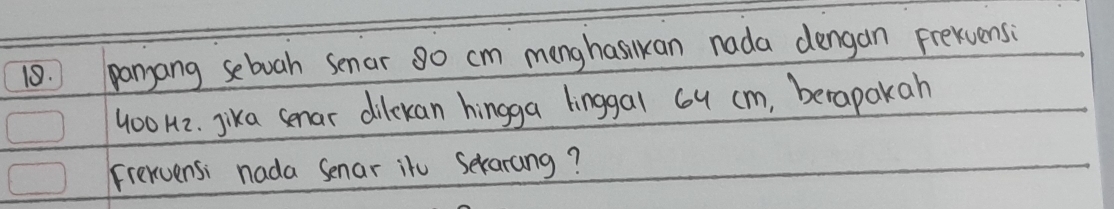 18. panjang sebuah senar 80 cm menghasilkan nada dengan Frekuensi
400 Hz. jika senar ditekan hingga tinggal 64 cm, berapakah
Frekuensi nada senar itu Sekarang?